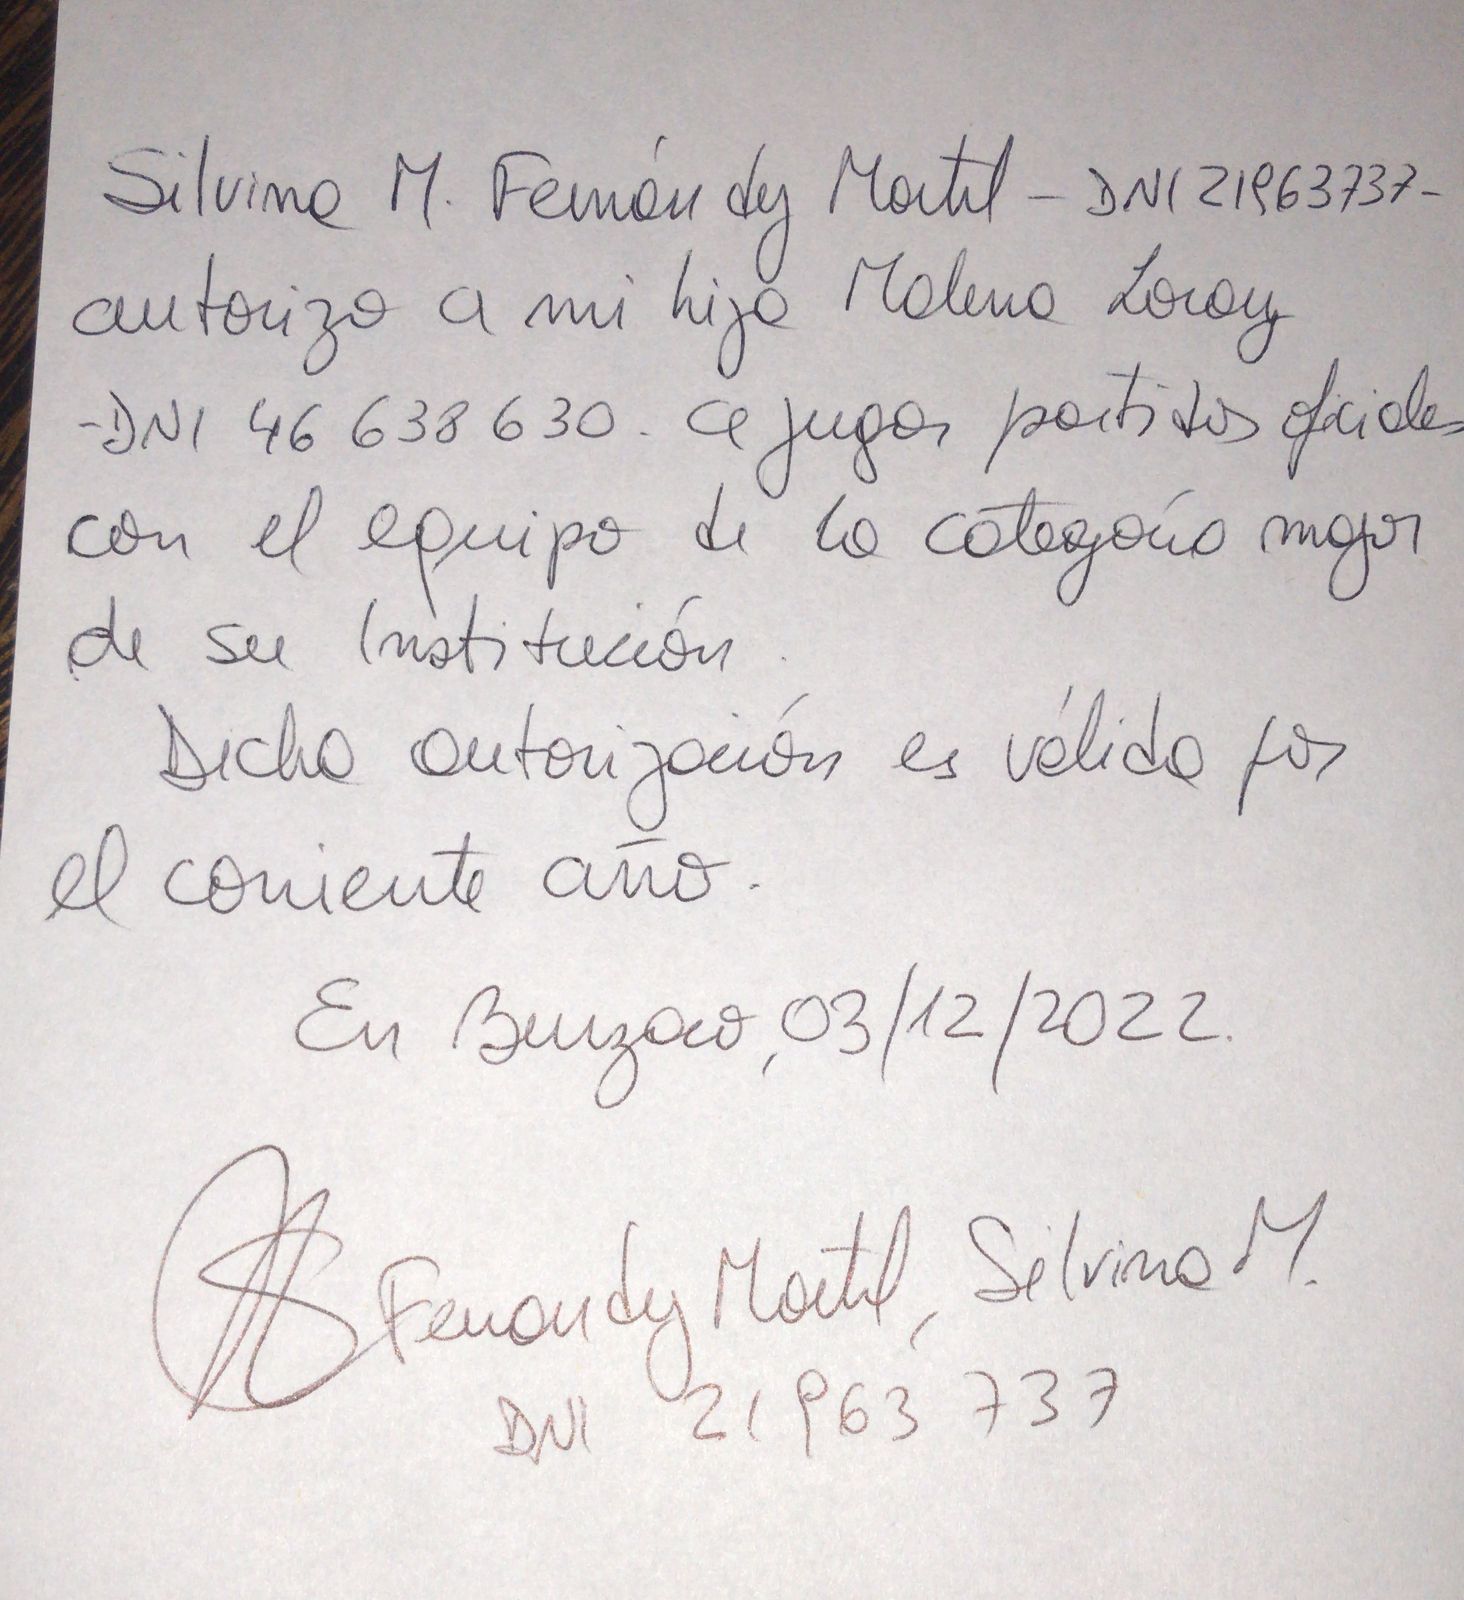 Silvina M. Fernández Martil - DNI 21963737-
autorizo a mi hija Malena Loray
-DNI 46 638 630. a jugar partidos oficiales
con el equipo de la categoría mayor
de su Institución.
Dicha autorización es válida por
el corriente año.
En Burzaco, 03/12/2022.
Fernandez Martil, Silvina M.
DNI 21 963 737